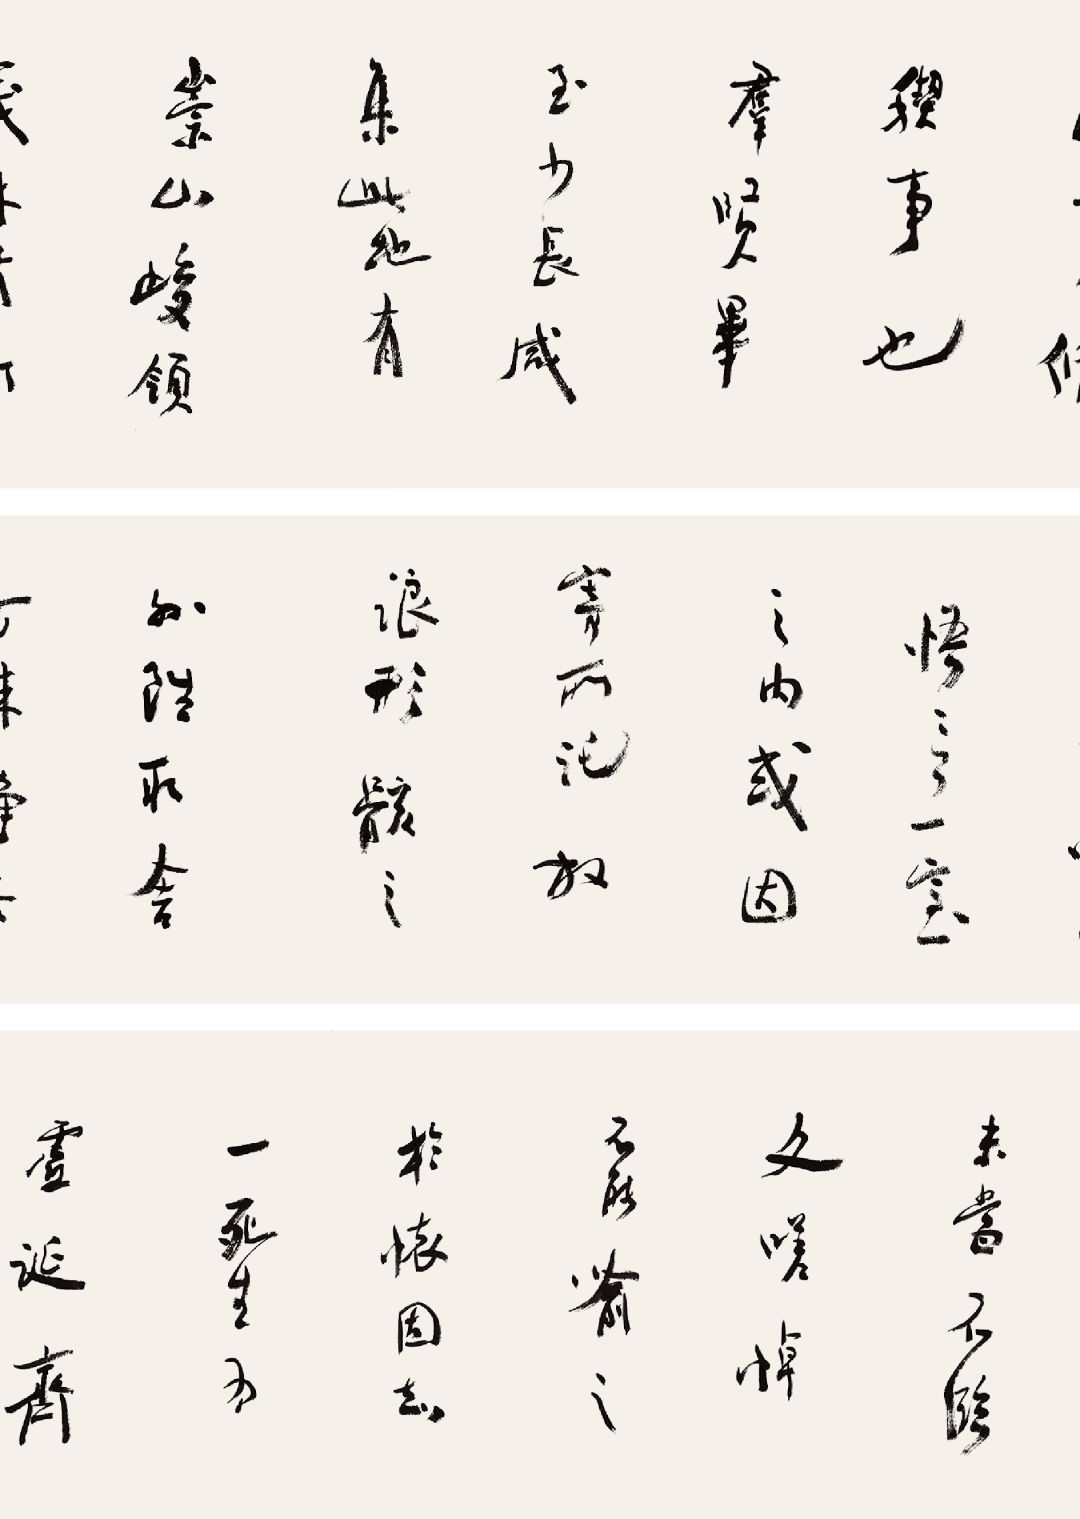 禊事也
羣賢畢
至少長咸
集此地有
崇山峻領
悟言一室
之内或因
寄所託放
浪形骸之
外雖取舍
未嘗不臨
文嗟悼
不能喻之
於懷固知
一死生為
虛誕齊